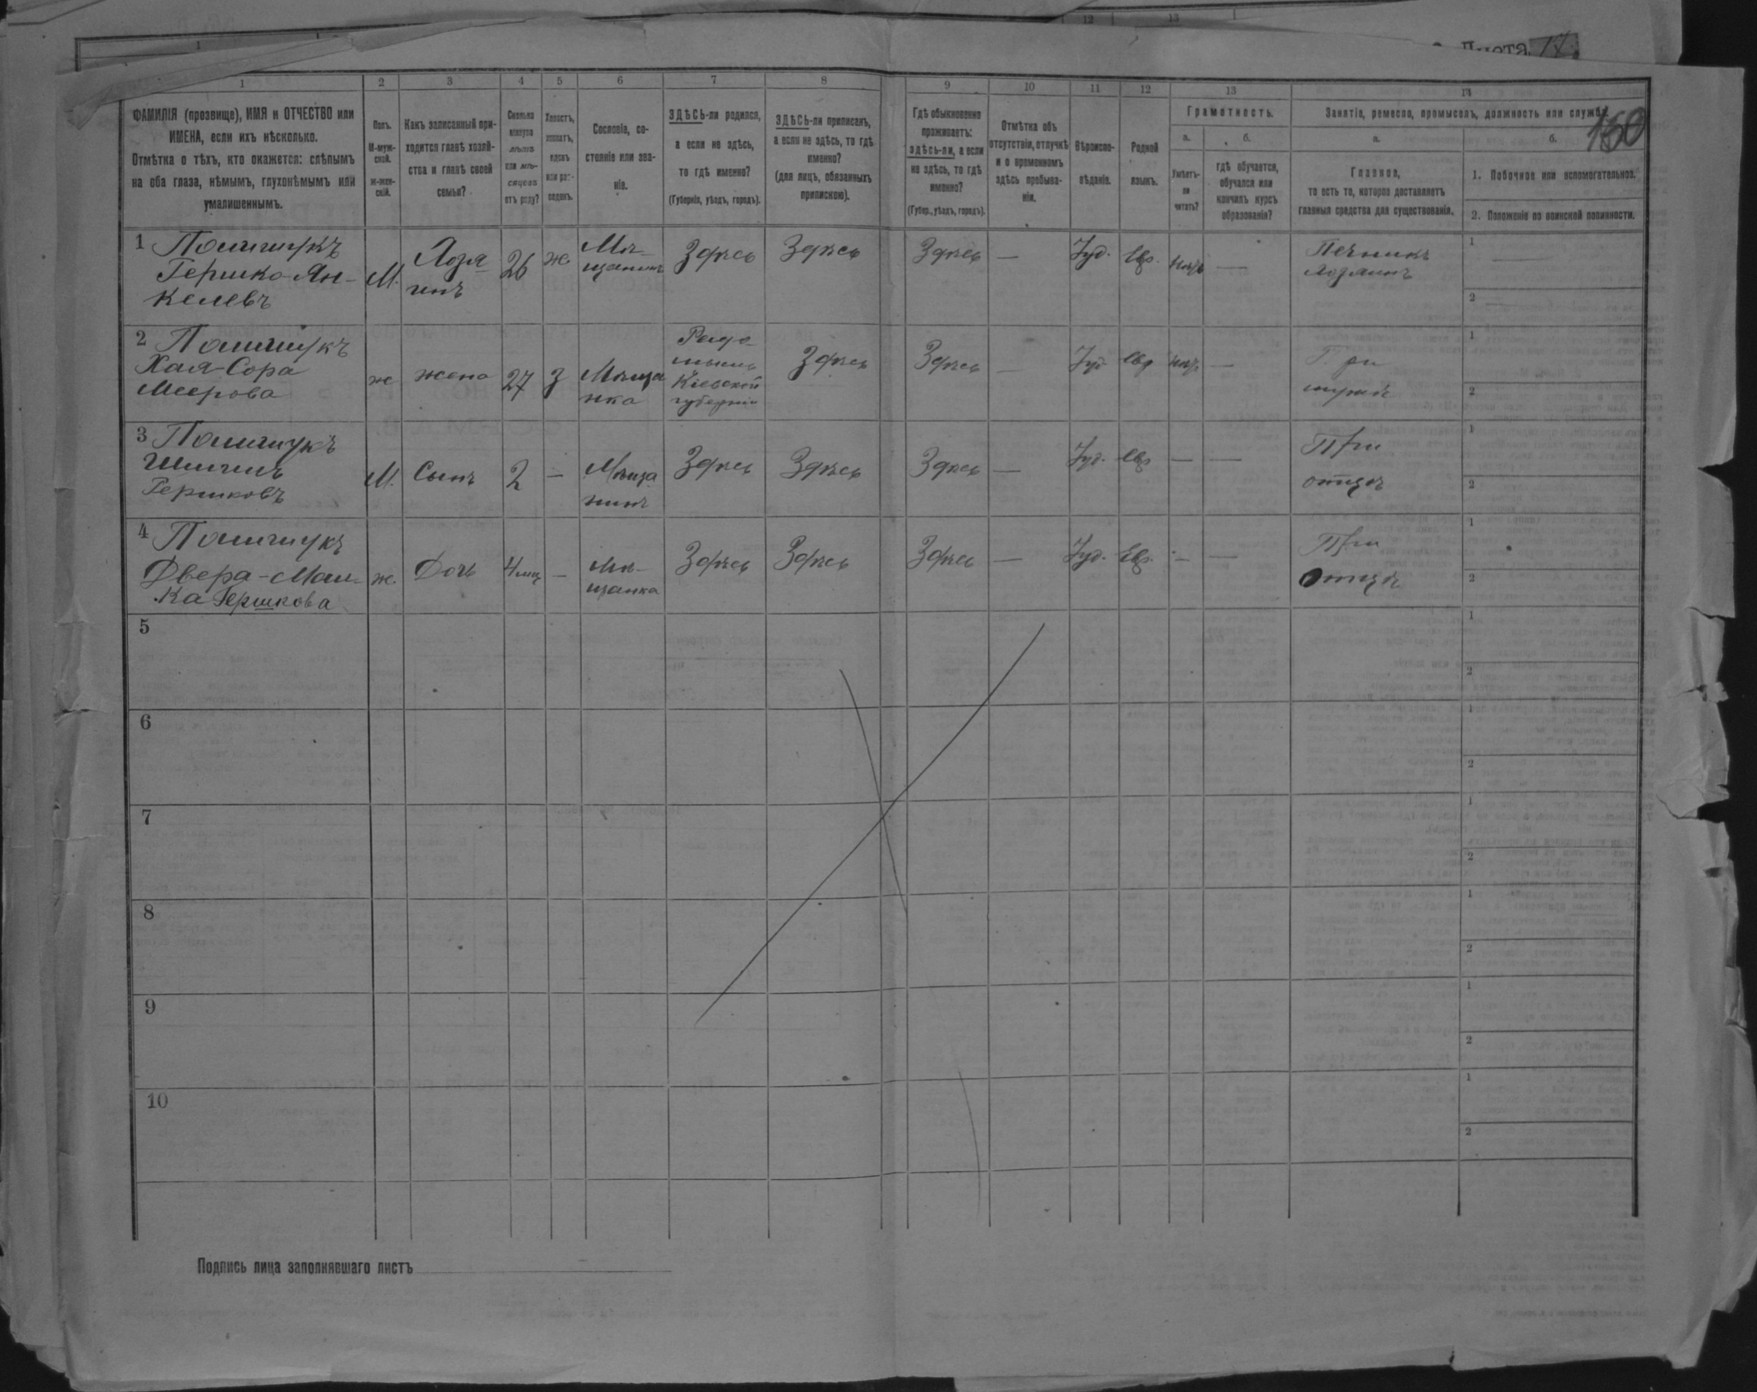 12 13
1
Листа 17.
150
1 2 3 4 5 6 7 8 9 10 11 12 13 14
ФАМИЛІЯ (прозвище), ИМЯ и ОТЧЕСТВО или
ИМЕНА, если ихъ нѣсколько.
Отмѣтка о тѣхъ, кто окажется: слѣпымъ
на оба глаза, нѣмымъ, глухонѣмымъ или
умалишеннымъ.
Полъ.
М-муж-
ской.
Ж-жен-
скій.
Какъ записанный при-
ходится главѣ хозяй-
ства и главѣ своей
семьи?
Сколько
минуло
лѣтъ
или мѣ-
сяцевъ
отъ роду?
Холостъ,
женатъ,
вдовъ
или раз-
веденъ.
Сословіе, со-
стояніе или зва-
ніе.
ЗДѢСЬ-ли родился,
а если не здѣсь,
то гдѣ именно?
(Губернія, уѣздъ, городъ).
ЗДѢСЬ-ли приписанъ,
а если не здѣсь, то гдѣ
именно?
(для лицъ, обязанныхъ
припискою).
Гдѣ обыкновенно
проживаетъ:
здѣсь-ли, а если
не здѣсь, то гдѣ
именно?
(Губер., уѣздъ, городъ).
Отмѣтка объ
отсутствіи, отлучкѣ
и о временномъ
здѣсь пребыва-
ніи.
Вѣроиспо-
вѣданіе.
Родной
языкъ.
Грамотность.
а. б.
Умѣетъ-
ли
читать?
гдѣ обучается,
обучался или
кончилъ курсъ
образованія?
Занятіе, ремесло, промыселъ, должность или служба.
а. б.
Главное,
то есть то, которое доставляетъ
главныя средства для существованія.
1. Побочное или вспомогательное.
2. Положеніе по воинской повинности.
1 Полищукъ
Гершко Ян-
келевъ
М.
Хозя-
инъ
26
ж
Мѣ-
щанинъ
Здѣсь Здѣсь Здѣсь — Іуд. Евр. —
Печникъ
хозяинъ
1 —
2 —
2 Полищукъ
Хая-Сора
Меерова
ж жена 27 з
Мѣща
нка
Радо-
мысль
Кіевской
губерніи
Здѣсь Здѣсь — Іуд Евр —
При
мужѣ
1
2
3 Полищукъ
Гершковъ
М. Сынъ 2 —
Мѣща
нинъ
Здѣсь Здѣсь Здѣсь — Іуд. Евр — —
При
отцѣ
1
2
4 Полищукъ
Двера-Мал-
ка Гершкова
ж. Дочь 4 мѣс —
Мѣ-
щанка
Здѣсь Здѣсь Здѣсь — Іуд. Евр. — —
При
отцѣ
1
2
5
1
2
6
1
2
7
1
2
8
1
2
9
1
2
10
1
2
Подпись лица заполнявшаго листъ